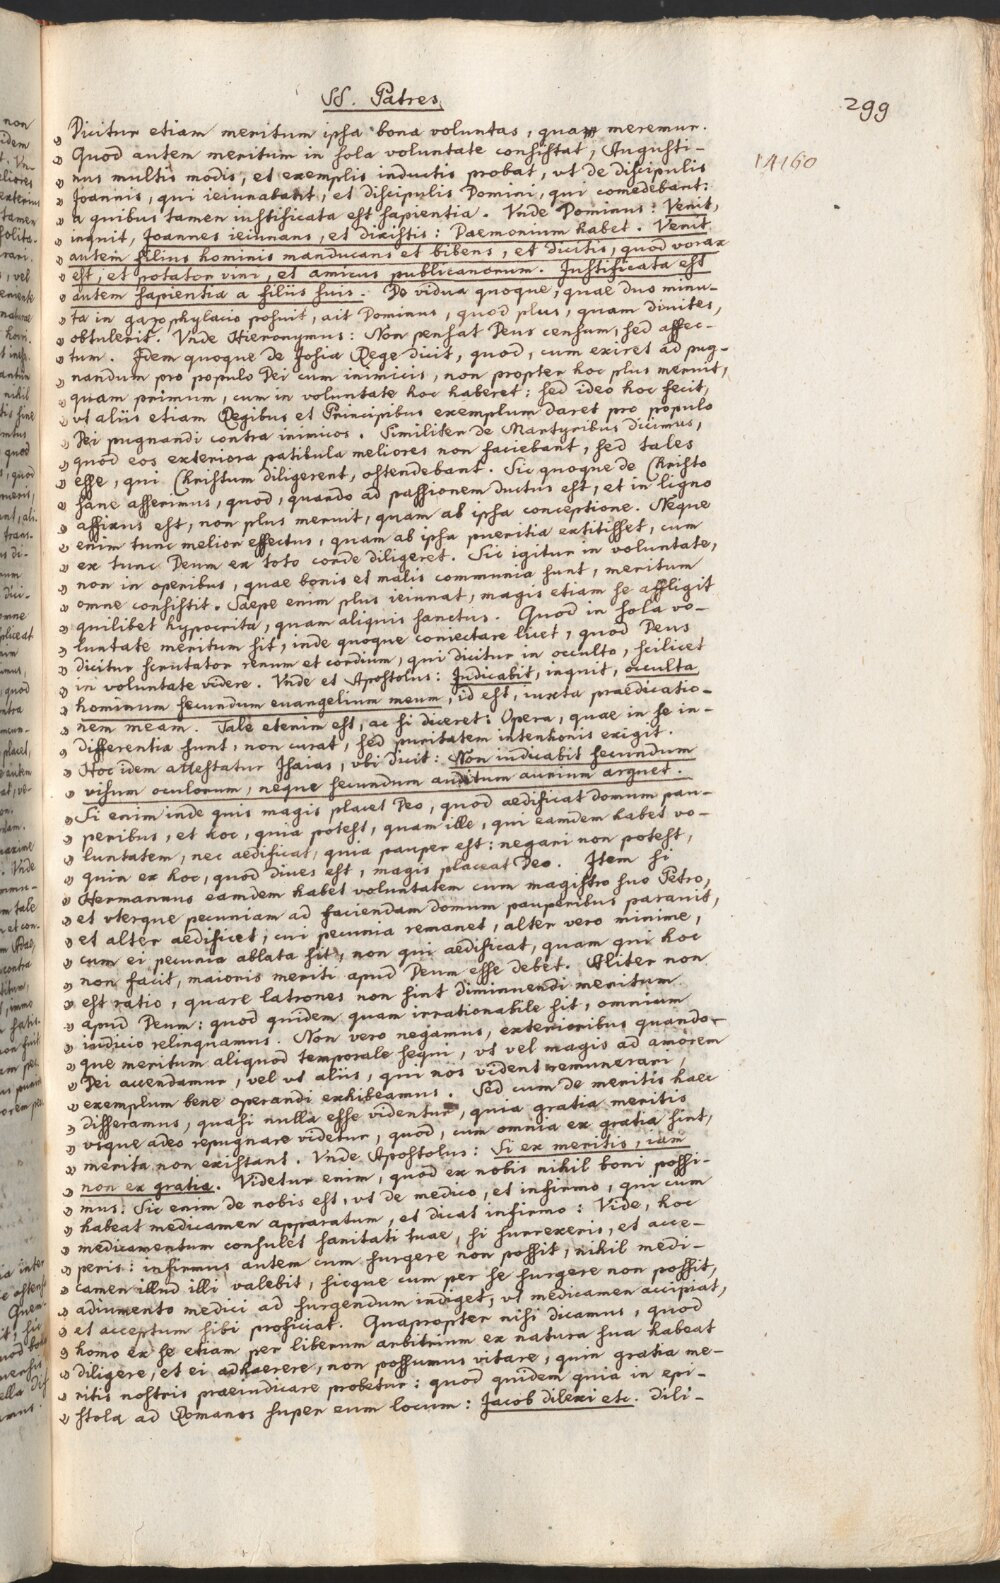 SS. Patres
299
14160
„ Dicitur etiam meritum ipsa bona voluntas, quam meremur.
„ Quod autem meritum in sola voluntate consistat, Augusti-
„ nus multis modis, et exemplis inductis probat, vt de discipulis
„ Joannis, qui ieiunabant, et discipulis Domini, qui comedebant:
„ a quibus tamen iustificata est sapientia. Vnde Dominus: Venit,
„ inquit, Joannes ieiunans, et dixistis: Daemonium habet. Venit
„ autem filius hominis manducans et bibens, et dicitis, quod vorax
„ est, et potator vini, et amicus publicanorum. Justificata est
„ autem sapientia a filiis suis. De vidua quoque, quae duo minu-
„ ta in gazophylacio posuit, ait Dominus, quod plus, quam diuites,
„ obtulerit. Vnde Hieronymus: Non pensat Deus censum, sed affec-
„ tum. Idem quoque de Josia Rege dicit, quod, cum exiret ad pug-
„ nandum pro populo Dei cum inimicis, non propter hoc plus meruit,
„ quam primum, cum in voluntate hoc haberet: sed ideo hoc fecit,
„ vt aliis etiam Regibus et Principibus exemplum daret pro populo
„ Dei pugnandi contra inimicos. Similiter de Martyribus dicimus,
„ quod eos exteriora patibula meliores non faciebant, sed tales
„ esse, qui Christum diligerent, ostendebant. Sic quoque de Christo
„ sane asserimus, quod, quando ad passionem ductus est, et in ligno
„ affixus est, non plus meruit, quam ab ipsa conceptione. Neque
„ enim tunc melior effectus, quam ab ipsa pueritia extitisset, cum
„ ex tunc Deum ex toto corde diligeret. Sic igitur in voluntate,
„ non in operibus, quae bonis et malis communia sunt, meritum
„ omne consistit. Saepe enim plus ieiunat, magis etiam se affligit
„ quilibet hypocrita, quam aliquis sanctus. Quod in sola vo-
„ luntate meritum sit, inde quoque coniectare licet, quod Deus
„ dicitur scrutator renum et cordium, qui dicitur in occulto, scilicet
„ in voluntate videre. Vnde et Apostolus: Judicabit, inquit, occulta
„ hominum secundum euangelium meum, id est, iuxta praedicatio-
„ nem meam. Tale etenim est, ac si diceret: Opera, quae in se in-
„ differentia sunt, non curat, sed puritatem intentionis exigit.
„ Hoc idem attestatur Isaias, vbi dicit: Non iudicabit secundum
„ visum oculorum, neque secundum auditum aurium arguet.
„ Si enim inde quis magis placet Deo, quod aedificat domum pau-
„ peribus, et hoc, quia potest, quam ille, qui eamdem habet vo-
„ luntatem, nec aedificat, quia pauper est: negari non potest,
„ quin ex hoc, quod diues est, magis placeat Deo. Item si
„ Hermannus eamdem habet voluntatem cum magistro suo Petro,
„ et vterque pecuniam ad faciendam domum pauperibus parauit,
„ et alter aedificet, cui pecunia remanet, alter vero minime,
„ cum ei pecunia ablata sit, non qui aedificat, quam qui hoc
„ non facit, maioris meriti apud Deum esse debet. Aliter non
„ est ratio, quare latrones non sint diminuendi meritum
„ apud Deum: quod quidem quam irrationabile sit, omnium
„ iudicio relinquamus. Non vero negamus, exterioribus quando-
„ que meritum aliquod temporale sequi, vt vel magis ad amorem
„ Dei accendamur, vel vt aliis, qui nos vident remunerari,
„ exemplum bene operandi exhibeamus. Sed cum de meritis haec
„ differamus, quasi nulla esse videntur, quia gratia meritis
„ vsque adeo repugnare videtur, quod, cum omnia ex gratia sint,
„ merita non existant. Vnde Apostolus: Si ex meritis, iam
„ non ex gratia. Videtur enim, quod ex nobis nihil boni possi-
„ mus. Sic enim de nobis est, vt de medico, et infirmo, qui cum
„ habeat medicamen apparatum, et dicat infirmo: Vide, hoc
„ medicamentum consulet sanitati tuae, si surrexeris, et acce-
„ peris: infirmus autem cum surgere non possit, nihil medi-
„ camen illud illi valebit, sicque cum per se surgere non possit,
„ adiumento medici ad surgendum indiget, vt medicamen accipiat,
„ et acceptum sibi proficiat. Quapropter nisi dicamus, quod
„ homo ex se etiam per liberum arbitrium ex natura sua habeat
„ diligere, et ei adhaerere, non possumus vitare, quin gratia me-
„ ritis nostris praeiudicare probetur: quod quidem quia in epi-
„ stola ad Romanos super eum locum: Jacob dilexi etc. dili-